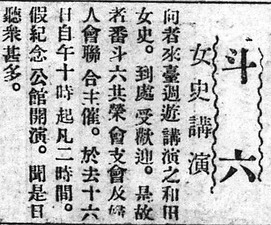 斗六
女史講演
向者來臺週遊講演之和田
女史。到處受歡迎。是故
者番斗六共榮會支會及婦
人會聯合主催。於去十六
日自午十時起凡二時間。
假紀念公館開演。聞是日
聽衆甚多。